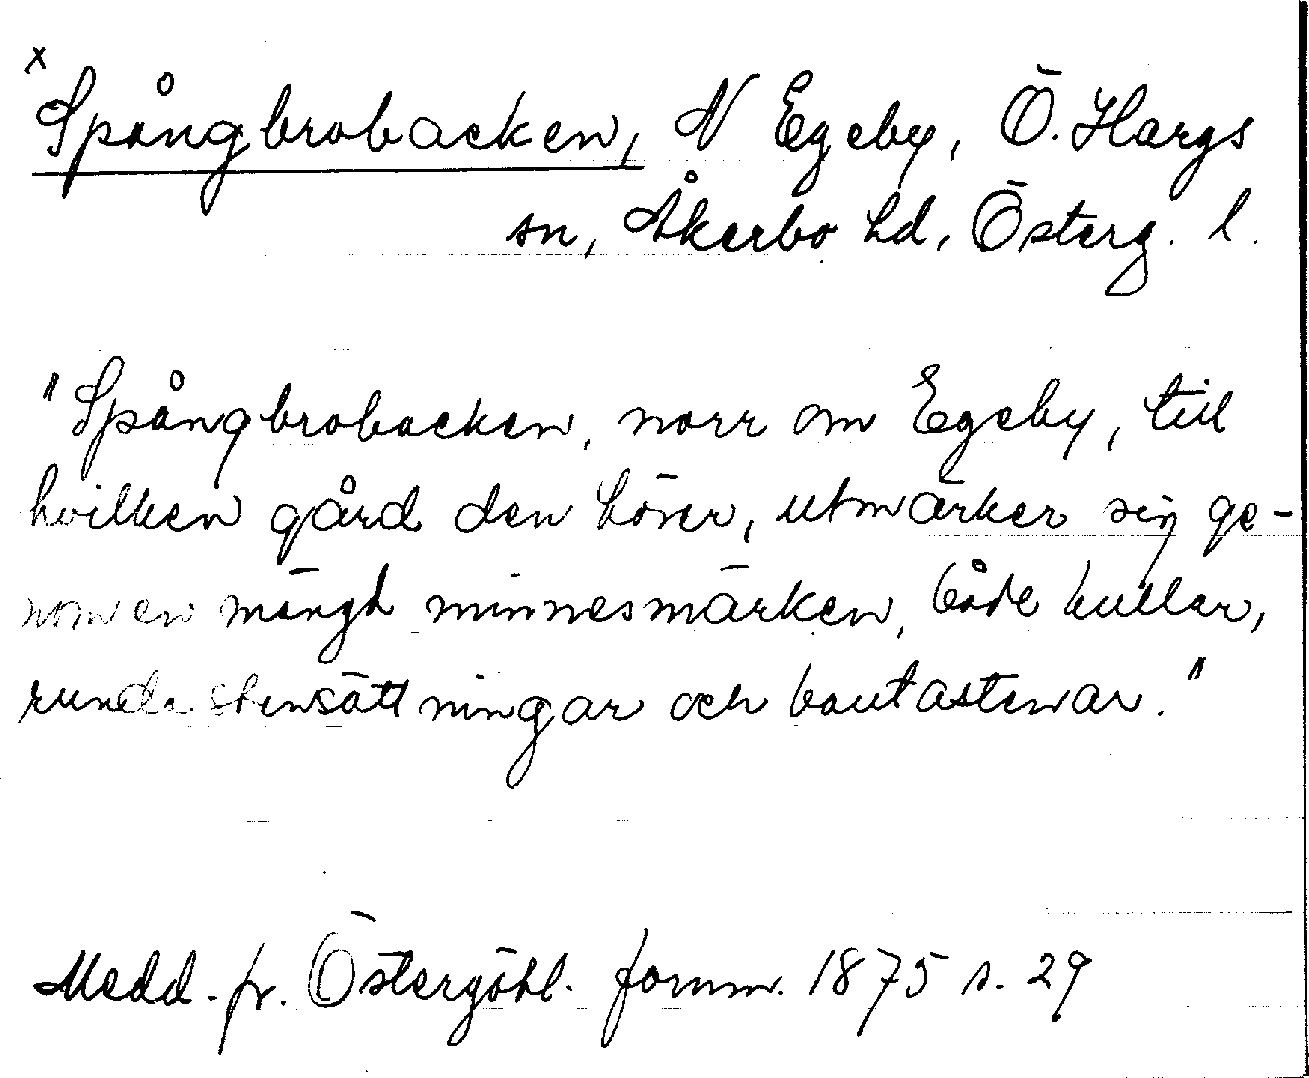 x
Spångbrobacken, N Egeby, Ö. Hargs
sn, Åkerbo hd, Österg. l.
"Spångbrobacken, norr om Egeby, till
hvilken gård den hörer, utmärker sig ge-
nom en mängd minnesmärken, både kullar,
runda stensättningar och bautastenar."
Medd. fr. Östergötl. fornm. 1875 s. 29